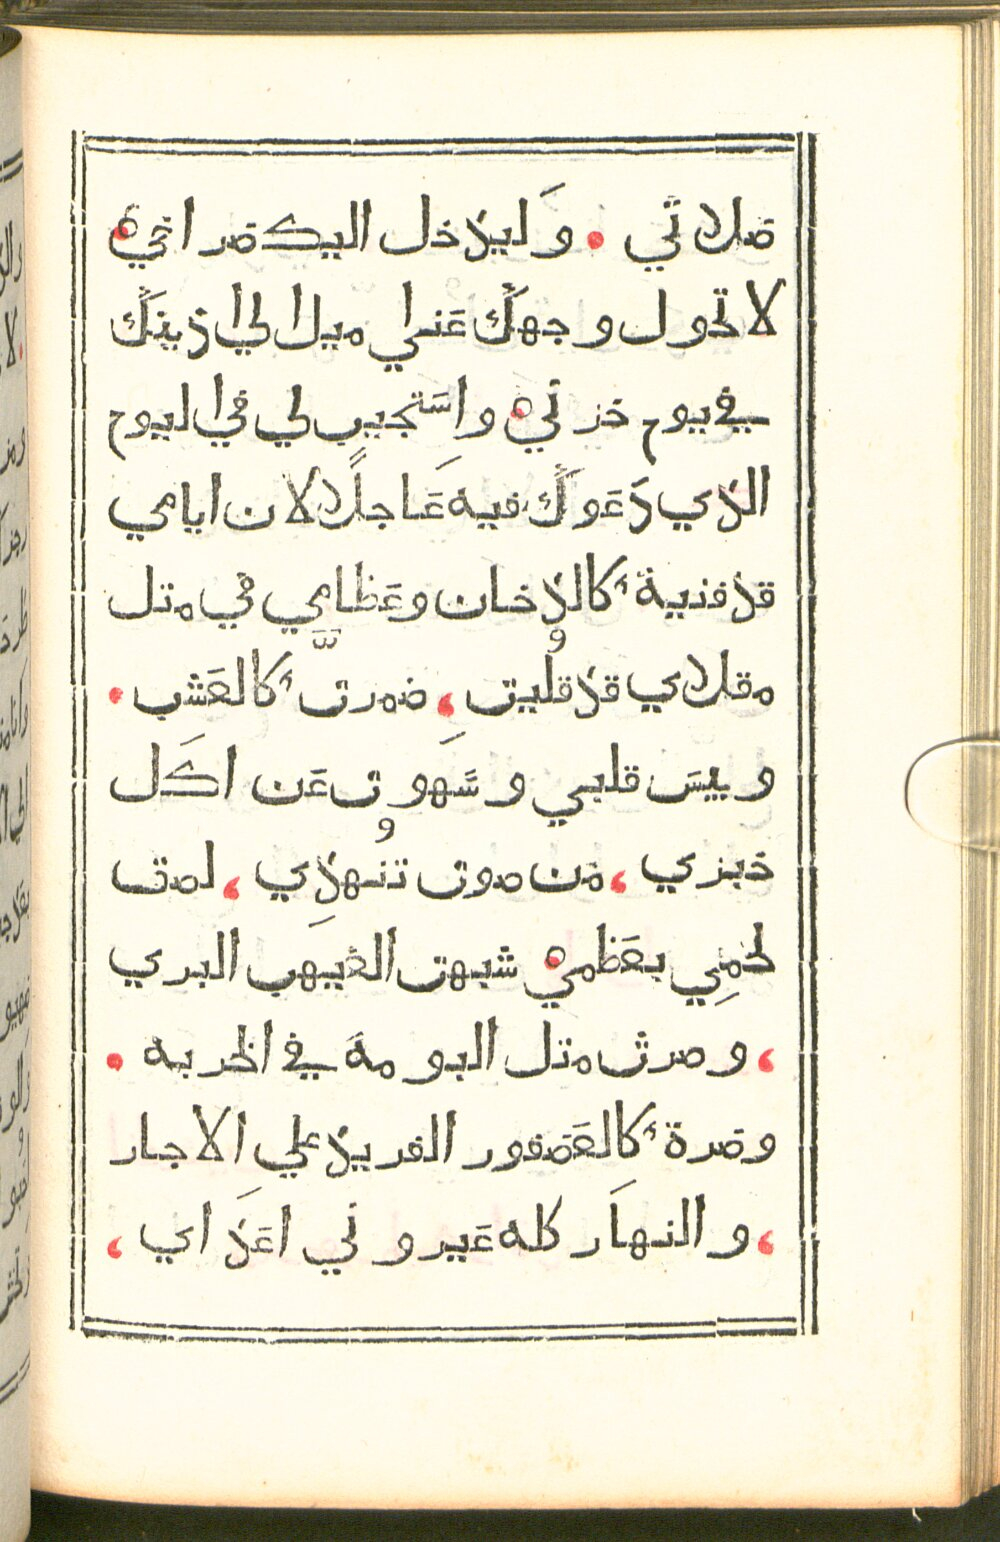 صلاتي • وَليدخل اليك صراخي
لا تحول وجهكَ عَني ا ميل الي اذينكَ
في يوم حزني واسَتجيب لي في اليوم
الذي دَعَوكَ فيه عَاجلًا لان ايامي
قد فنية كالدخان وعَظامي في متل
مقلاي قد قليت، ضمرت كالعَشب •
ويبسَ قلبي وسَهوت عَن اكَل
خبزي، من صوت تنهدِي، لصق
لحمِي بعَظمي شبهت الغيهب البري
، وصرت متل البومة في الخربه •
وصرة كالعَصفور الفريد علي الاجار
، والنهاَر كله عَيروني اعَداي،